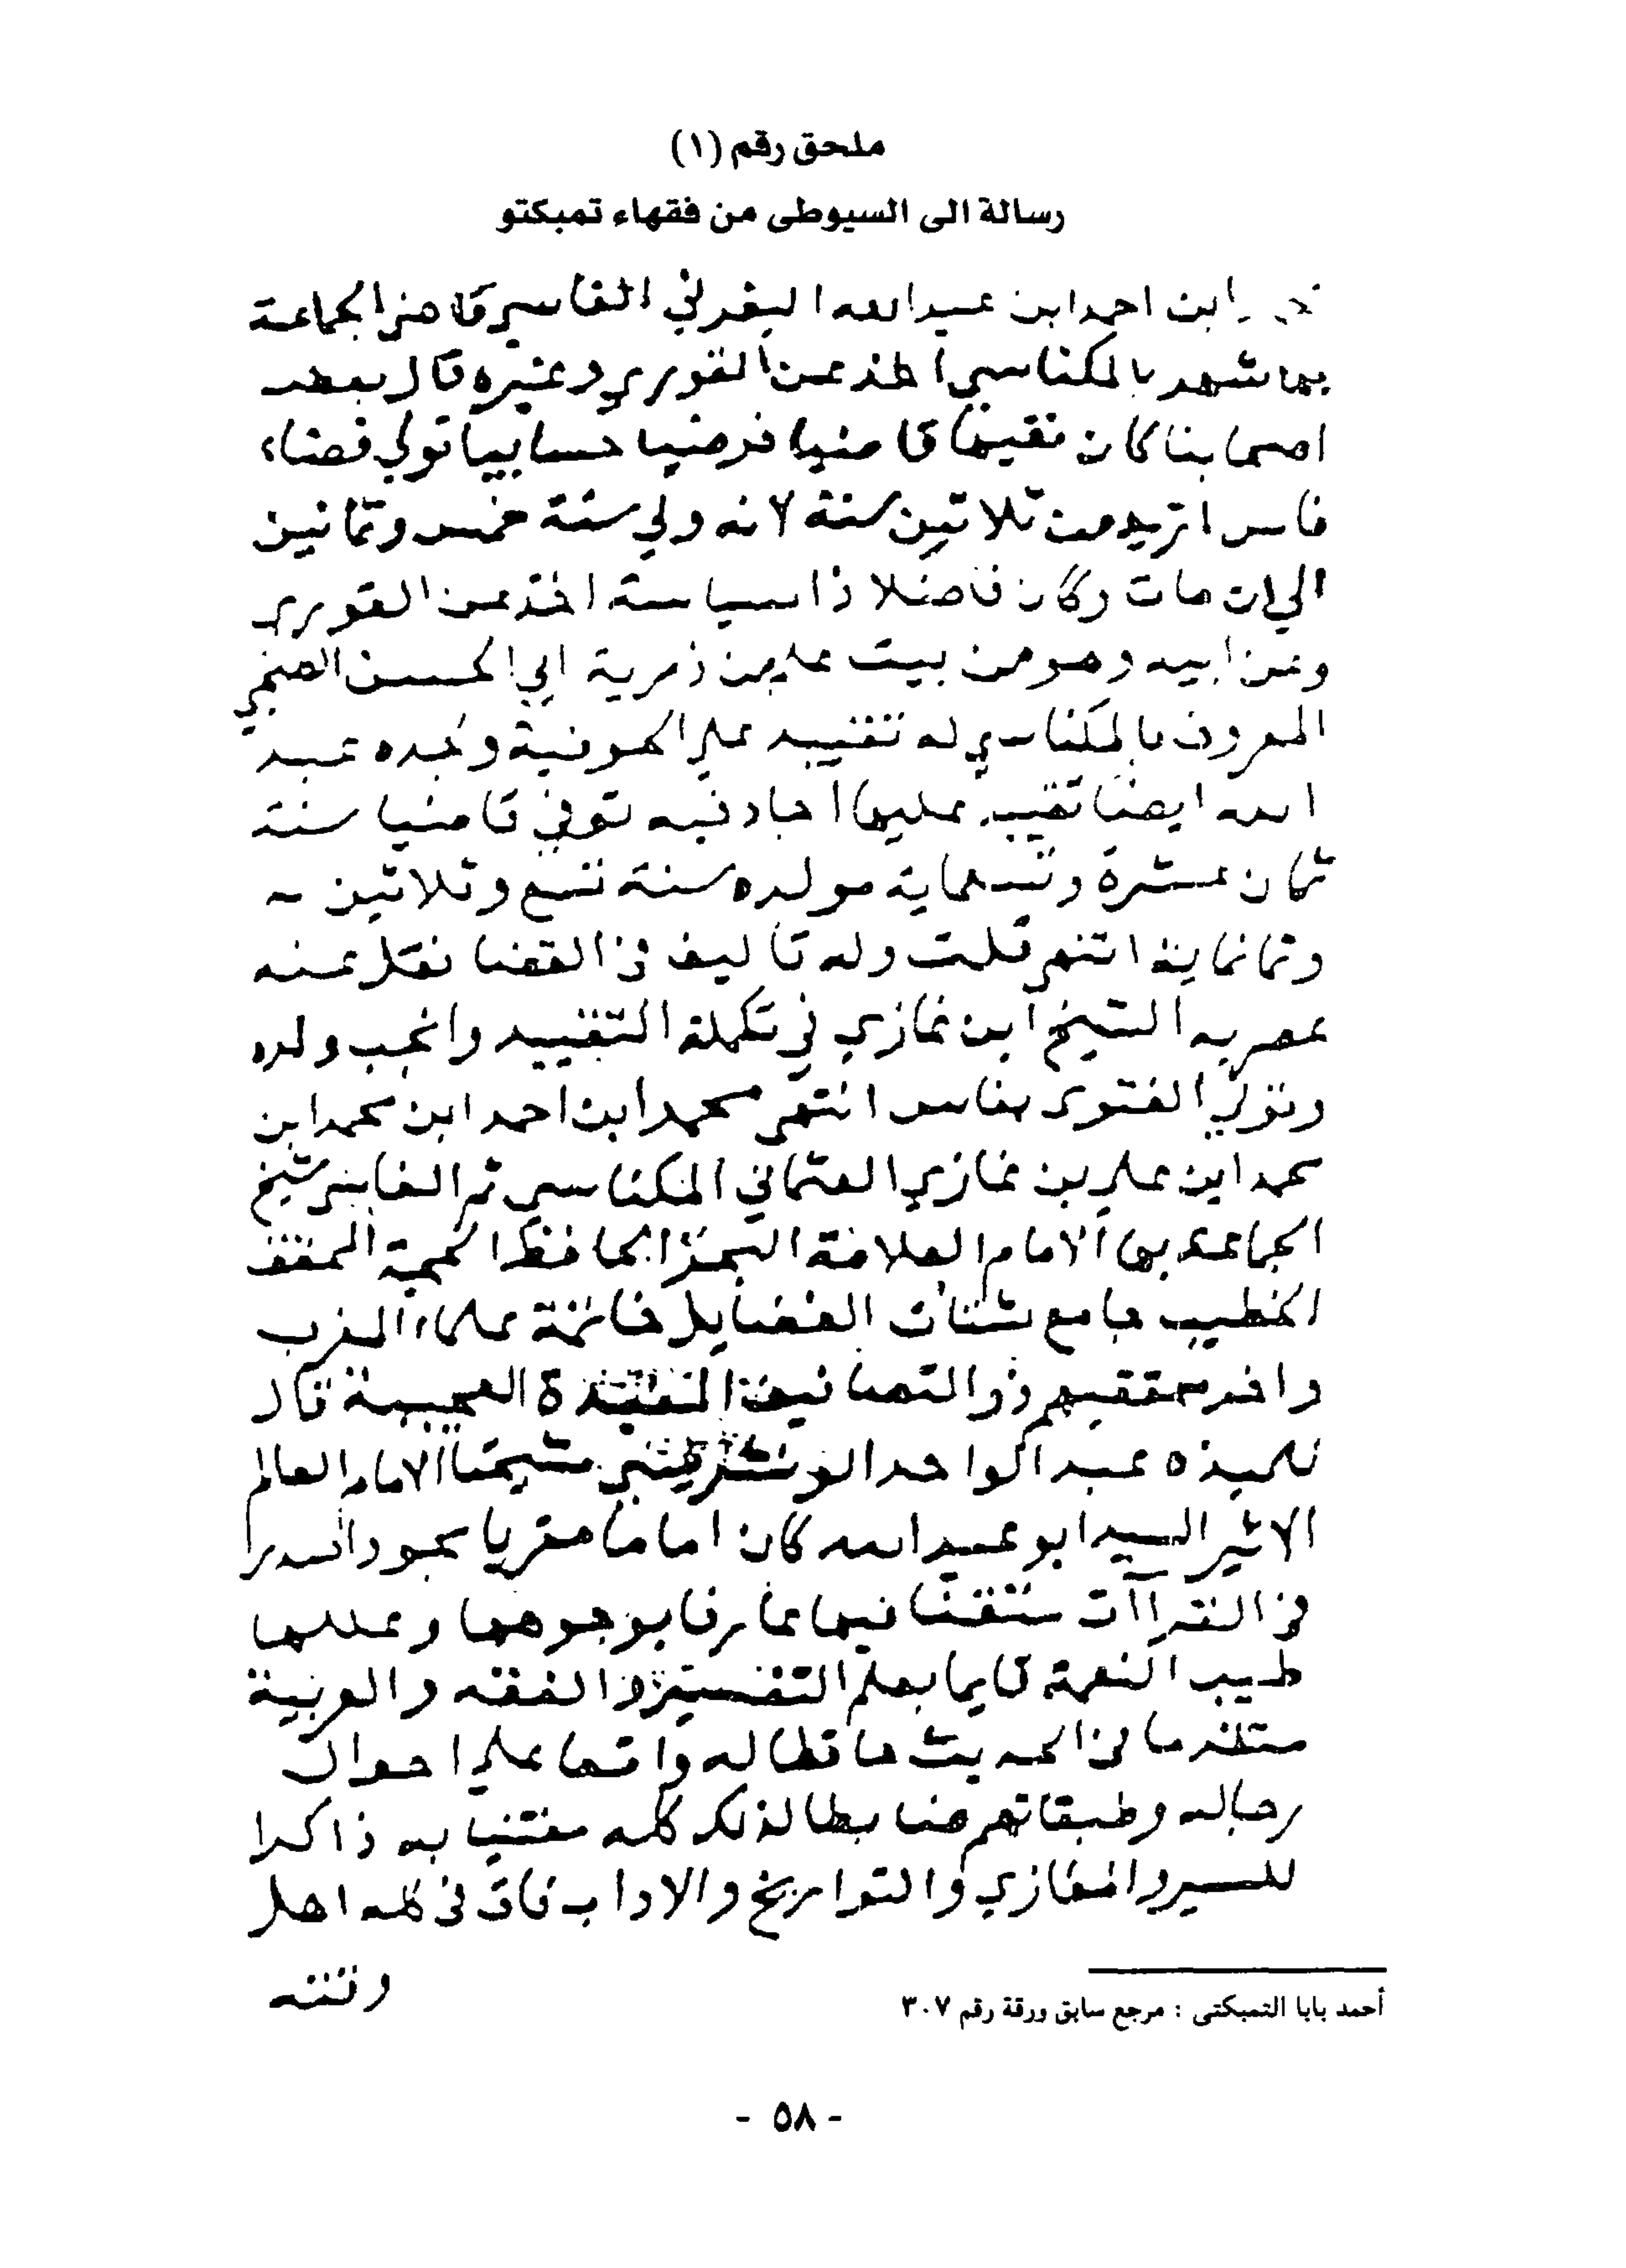 ملحق رقم (١)
رسالة الى السيوطى من فقهاء تمبكتو
ابن احمد ابن عبد الله اليفرني الفاسي قاضي الجماعة
بها شهر بالمكناسي اخذ عن القوري وغيره قال بعض
اصحابنا كان فقيها قاضيا فرضيا حسابيا تولي قضاء
فاس ازيد من ثلاثين سنة لانه ولي سنة خمس وثمانين
الي ان مات وكان فاضلا ذا سياسة اخذ عن القوري
وعن ابيه وهو من بيت علم من ذرية ابي الحسن
المعروف بالمكناسي له تقييد علي الحوفية ولجده عبد
الله ايضا تقييد عليها اجاد فيه توفي قاضيا سنة
ثمان عشرة وتسعماية مولده سنة تسع وثلاثين
وثمانماية انتهي قلت وله تاليف في القضا نقل عنه
عصريه الشيخ ابن غازي في تكملة التقييد وانجب ولده
وتولي الفتوي بفاس انتهي محمد ابن احمد ابن محمد ابن
محمد ابن علي بن غازي العثماني المكناسي ثم الفاسي شيخ
الجماعة بها الامام العلامة البحر الحافظ الحجة المحقق
الخطيب جامع شتات الفضايل خاتمة علماء المغرب
واخر محققيهم ذو التصانيف المفيدة العجيبة قال
تلميذه عبد الواحد الونشريسي شيخنا الامام العالم
الاثير السيد ابو عبد الله كان اماما مقريا مجودا صدرا
في القراات متقنا فيها عارفا بوجوهها وعللها
طيب النغمة قايما بعلم التفسير والفقه والعربية
متقدما في الحديث حافظا له واقفا علي احوال
رجاله وطبقاتهم ضابطا لذلك كله معتنيا به ذاكرا
للسير والمغازي والتواريخ والاداب فاق في كله اهل
وقته
أحمد بابا التمبكتى : مرجع سابق ورقة رقم ٣٠٧
- ٥٨ -